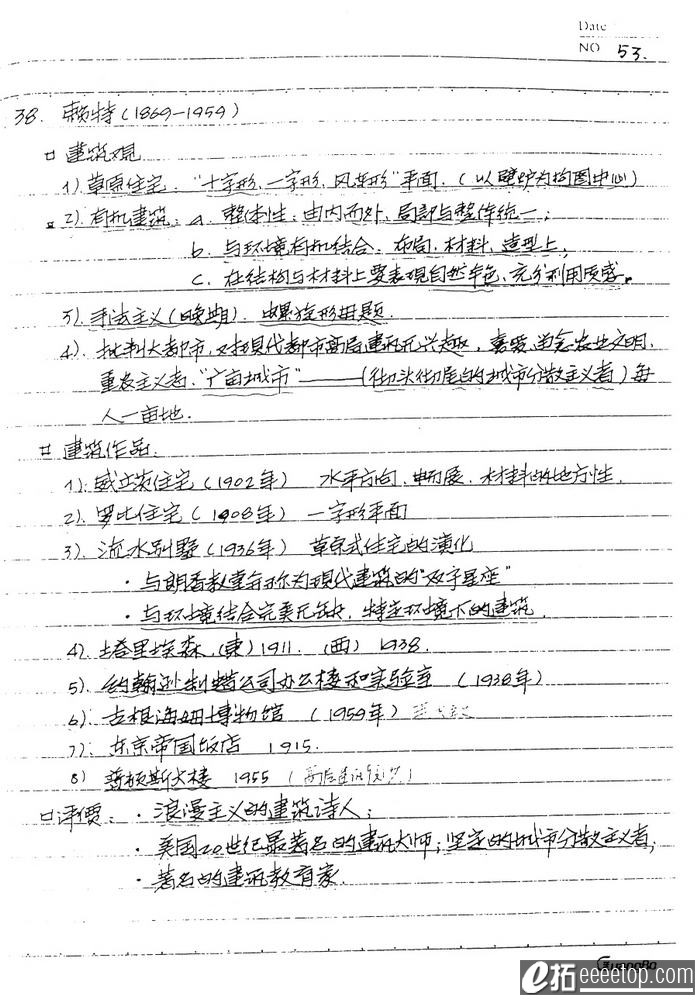 Date
NO 53.
38. 赖特(1869-1959)
建筑观
1) 草原住宅. "十字形, 一字形, 风车形" 平面. (以壁炉为构图中心)
2). 有机建筑: a. 整体性: 由内而外, 局部与整体统一;
b. 与环境有机结合. 布局. 材料. 造型上,
c. 在结构与材料上要表现自然本色, 充分利用质感.
3). 手法主义(晚期). 螺旋形母题.
4). 批判大都市, 对现代都市高层建筑无兴趣, 喜爱、留念农业文明,
重农主义者. "广亩城市" ——— (彻头彻尾的城市分散主义者) 每
人一亩地.
建筑作品.
1). 威立茨住宅(1902年) 水平方向, 伸展. 材料的地方性.
2). 罗比住宅(1908年) 一字形平面
3). 流水别墅(1936年) 草原式住宅的演化
· 与朗香教堂并称为现代建筑的"双子星座"
· 与环境结合完美无缺, 特定环境下的建筑.
4). 塔里埃森. (東)1911. (西) 1938.
5). 约翰逊制蜡公司办公楼和实验室 (1938年)
6). 古根海姆博物馆 (1959年)
7). 东京帝国饭店 1915.
8) 普顿斯大楼 1955
评價: · 浪漫主义的建筑诗人;
· 美国20世纪最著名的建筑大师; 坚定的城市分散主义者;
· 著名的建筑教育家.
GuangBo
e拓 eeeetop.com